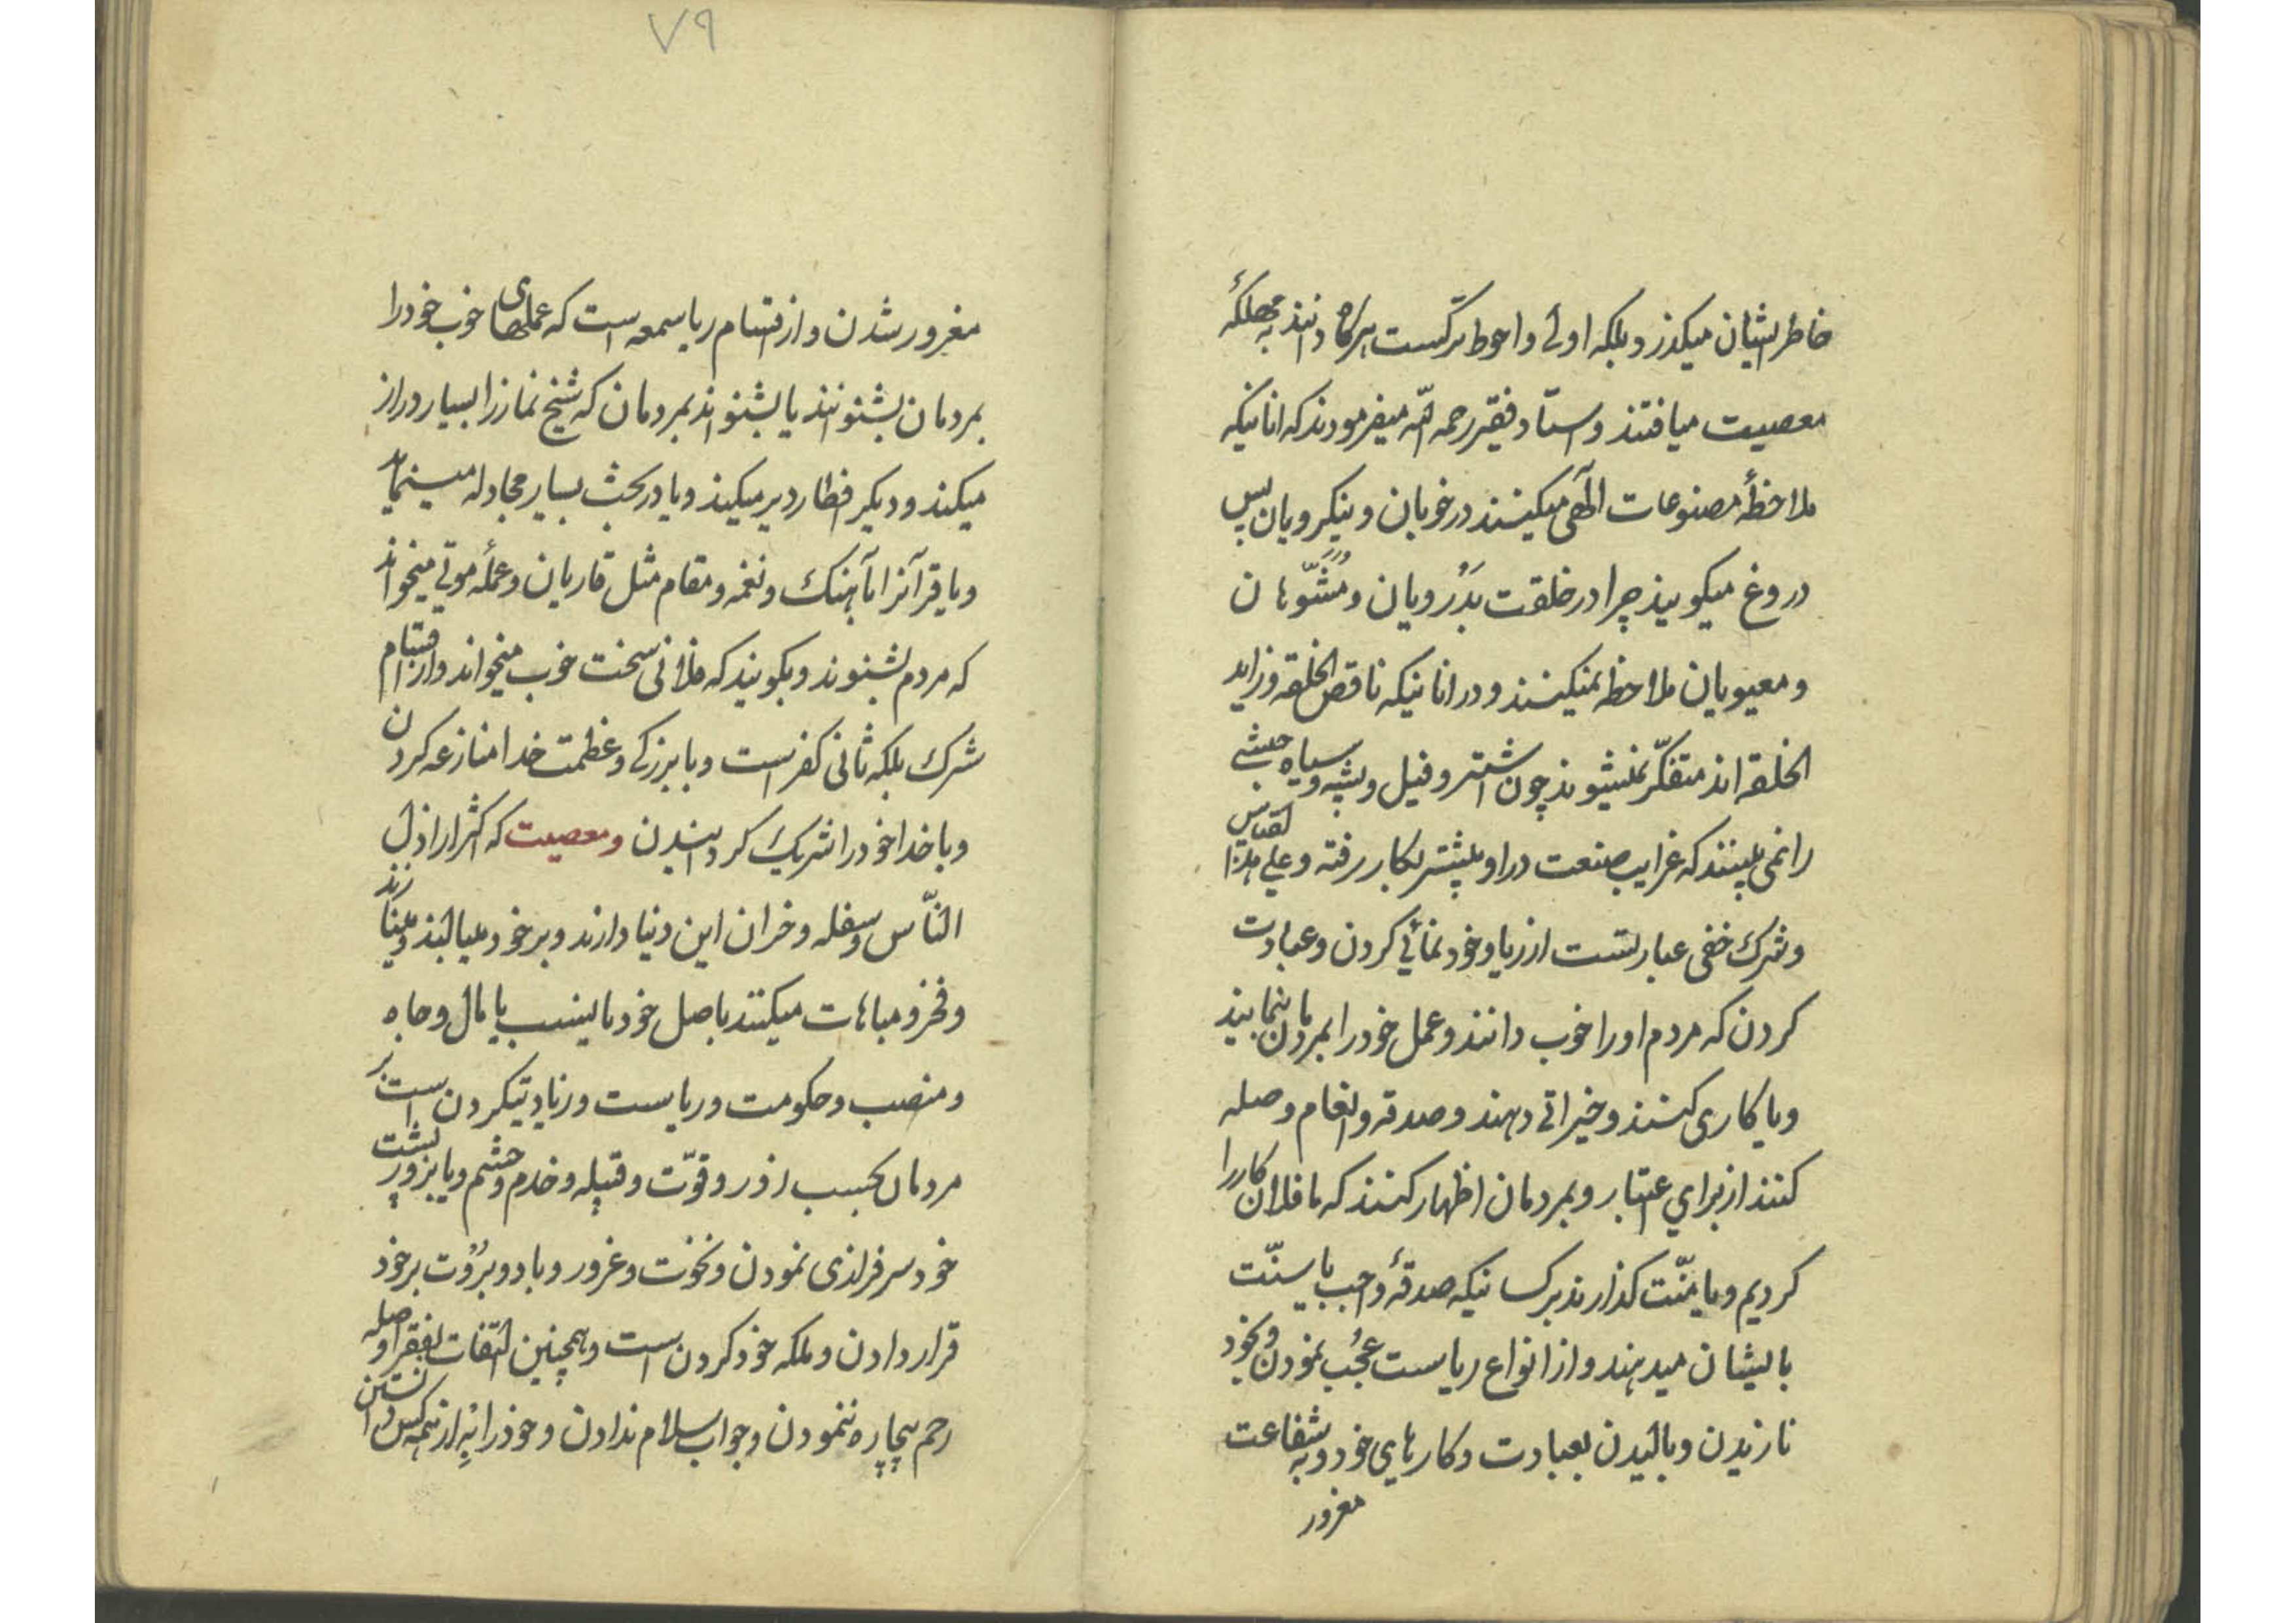 خاطر ایشان میکذرد و بلکه اولی و احوط ترکست هرکاه دانند بمهلکهٔ
معصیت میافتند و استاد فقیر رحمه الله میفرمودند که انانیکه
ملاحظهٔ مصنوعات الٓهی میکینند در خوبان و نیکرویان پس
دروغ میکویند چرا در خلقت بَدْرویان و مُشَوَّهان
و معیوبان ملاحظه نمیکینند و در انانیکه ناقص الخلقه و زاید
الخلقه اند متفکّر نمیشوند چون اشتر و فیل و پشه و سیاه حبشی
را نمی بینند که غرایب صنعت در او بیشتر بکار رفته و علی هذا القیاس
و شرک خفی عبارتست از ریا و خود نمائی کردن و عبادت
کردن که مردم او را خوب دانند و عمل خود را بمردمان بنمایند
و یا کاری کنند و خیراتی دهند و صدقه و انعام و صله
کنند از برای اعتبار و بمردمان اظهار کنند که ما فلان کار را
کردیم و یا منّت کذارند بر کسانیکه صدقهٔ واجب یا سنّت
بایشان میدهند و از انواع ریاست عُجُب نمودن و بخود
نازیدن و بالیدن بعبادت و کارهای خود و به شفاعت
مغرور
۷۹
مغرور شدن و از اقسام ریا سمعه است که عملهای خوب خود را
بمردمان بشنوانند یا بشنواند بمردمان که شیخ نماز را بسیار دراز
میکند و دیکر افطار دیر میکیند و یا در بحث بسیار مجادله مینماید
و یا قرآنرا بآهنک و نغمه و مقام مثل قاریان و عملهٔ موتی میخواند
که مردم بشنوند و بکویند که فلانی سخت خوب میخواند و از اقسام
شرک بلکه ثانی کفر است و با بزرکی و عظمت خدا منازعه کردن
و با خدا خود را شریک کردانیدن و معصیت که اکثر اراذل
النّاس و سفله و خران این دنیا دارند و بر خود میبالند و مینازند
و فخر و مباهات میکنند باصل خود یا بنسب یا بمال و جاه
و منصب و حکومت و ریاست و زیادتیکردن است بر
مردمان بحسب زور و قوّت و قبیله و خدم و حشم و یا بزور پشت
خود سرفرازی نمودن و نخوت و غرور و باد و بُرُوت بر خود
قرار دادن و ملکه خود کردن است و همچنین التفات بفقرا و صله
رحم بیچاره ننمودن و جواب سلام ندادن و خود را بِه از همه کس دانستن